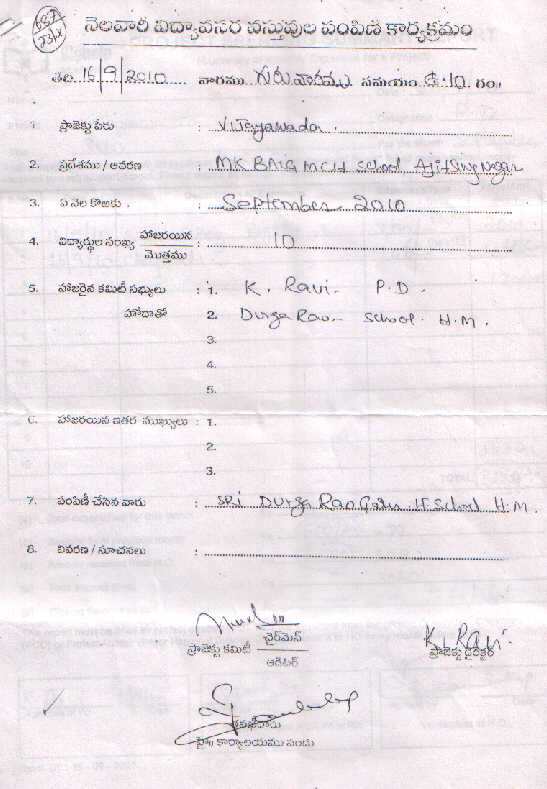 నెలవారీ విద్యావసర వస్తువుల పంపిణి కార్యక్రమం
తేది 16/9/2010 వారము గురువారము సమయం 10. గం.
1. ప్రాజెక్టు పేరు : Vijayawada.
2. ప్రదేశము / ఆవరణ : MK BAIG MCH School Ajitsing nagar
3. ఏ నెల కొఱకు. : September 2010
4. విద్యార్థుల సంఖ్య హాజరయిన : 10
మొత్తము
5. హాజరైన కమిటీ సభ్యులు : 1. K. Ravi. P.D.
హోదాతో 2. Durga Rao - School. H.M.
3.
4.
5.
6. హాజరయిన ఇతర ముఖ్యులు : 1.
2.
3.
7. పంపిణీ చేసిన వారు : SRi Durga Rao Garu School H.M.
8. వివరణ / సూచనలు :
ఛైర్మెన్ K. Ravi.
ప్రాజెక్టు కమిటీ ప్రాజెక్టు డైరెక్టర్
ఆడిటర్
కార్యాలయము నందు